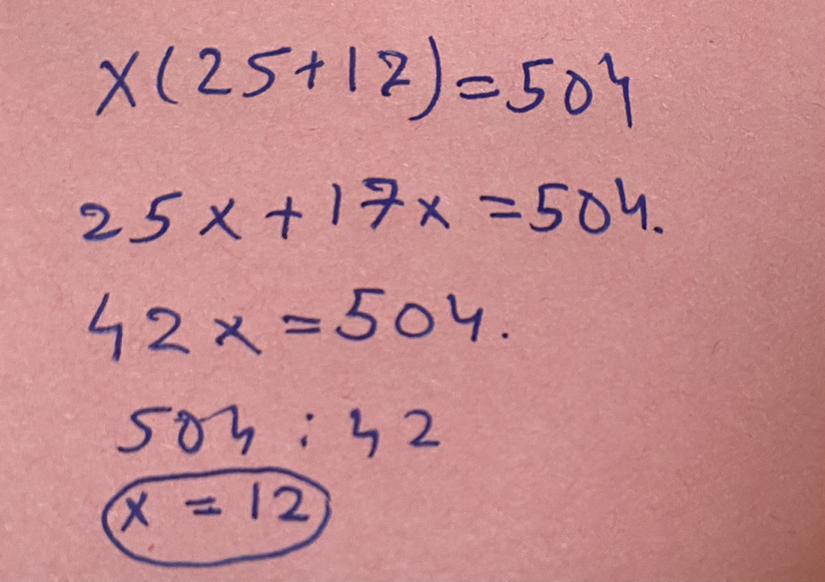 x(25+12)=504
25x+17x=504.
42x=504.
504:42
x=12